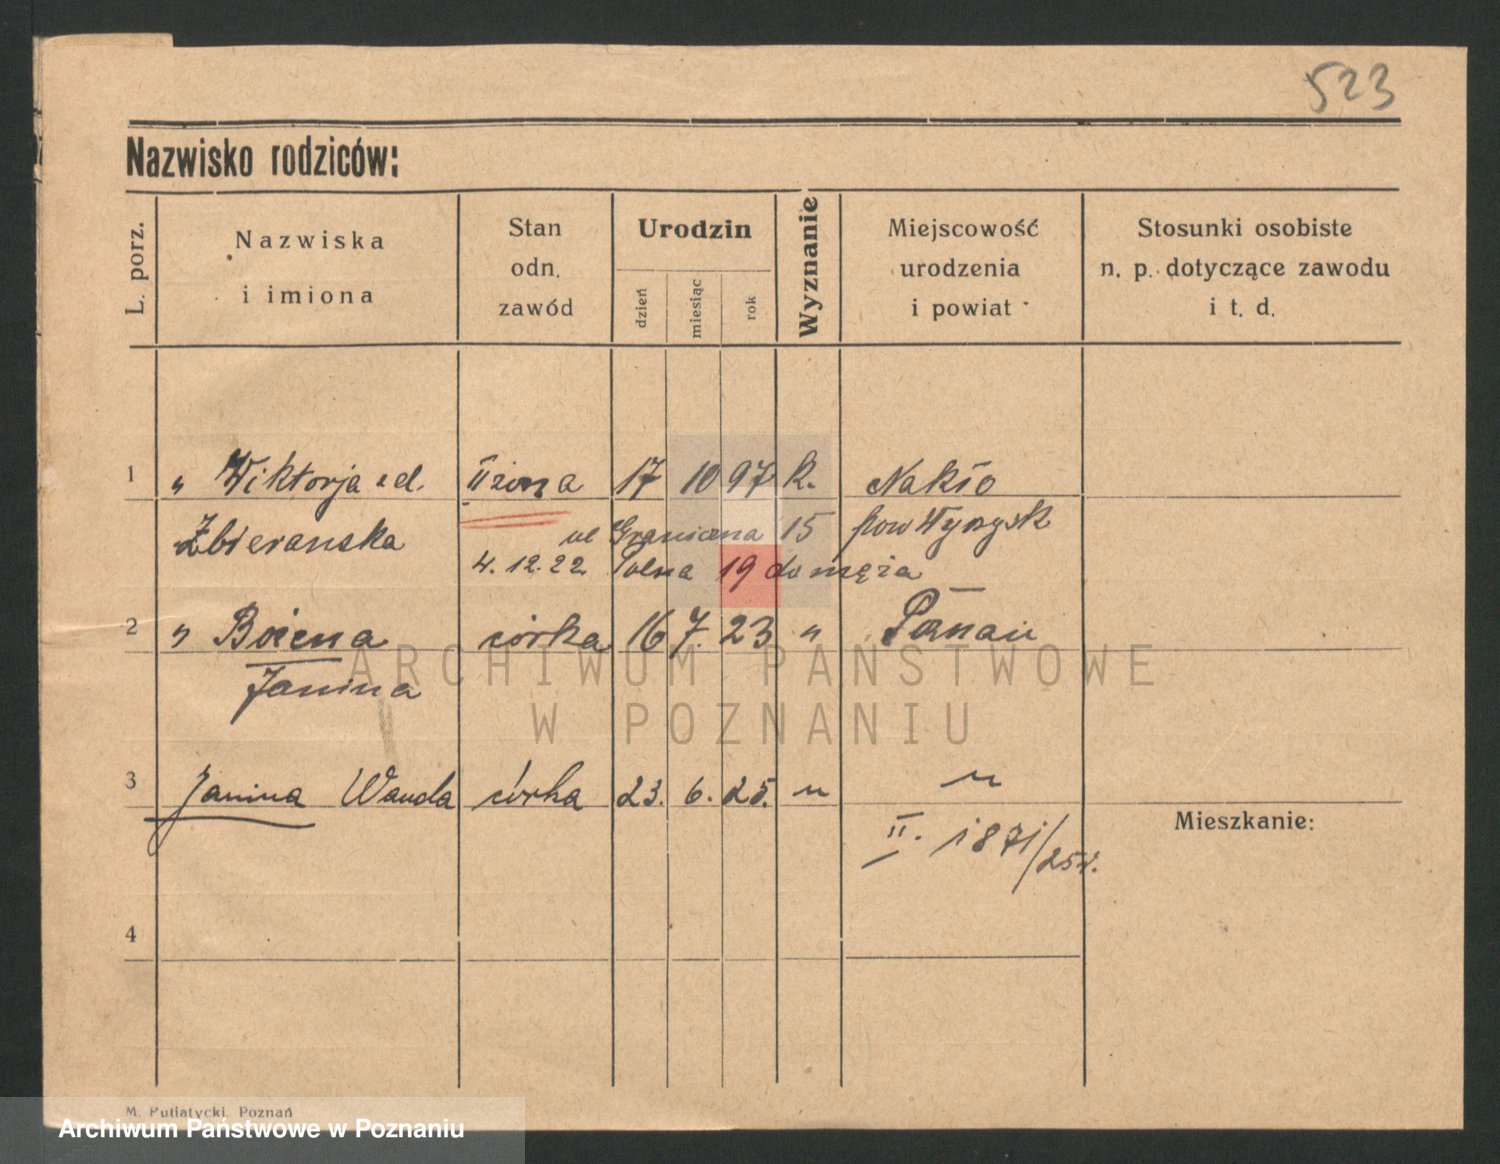 523
Nazwisko rodziców:
L. porz.
Nazwiska
i imiona
Stan
odn.
zawód
Urodzin
dzień
miesiąc
rok
Wyznanie
Miejscowość
urodzenia
i powiat
Stosunki osobiste
n. p. dotyczące zawodu
i t. d.
1 " Wiktorja z d. II żona 17 10 97 k. Nakło
Zbieranska ul Graniczna 15 pow Wyrzysk
4.12.22 Polna 19 do męża
2 " Bożena córka 16 7. 23 " Poznań
Janina
ARCHIWUM PAŃSTWOWE
W POZNANIU
3 Janina Wanda córka 23. 6. 25. " "
Mieszkanie:
II. 1871/25r.
4
M. Putiatycki, Poznań
Archiwum Państwowe w Poznaniu